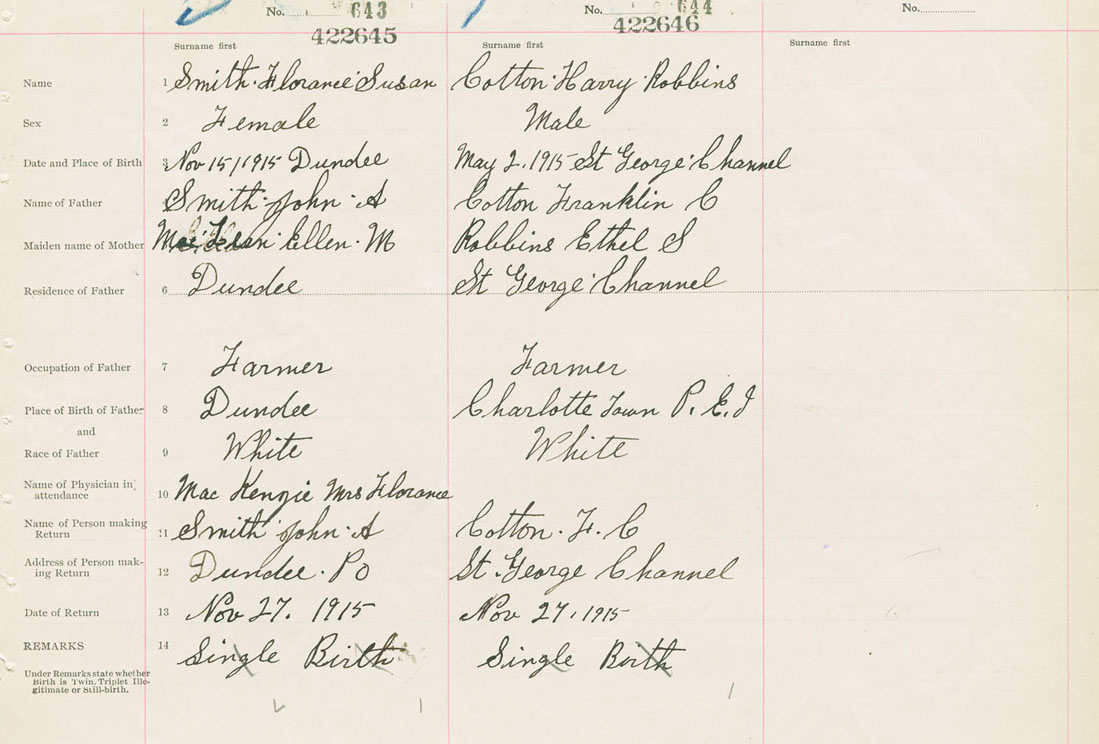 No. 643 No. 644 No.
422645 422646
Surname first Surname first Surname first
Name 1 Smith Florance Susan Cotton Harry Robbins
Sex 2 Female Male
Date and Place of Birth 3 Nov 15/1915 Dundee May 2. 1915 St George Channel
Name of Father Smith John A Cotton Franklin C
Maiden name of Mother Ellen M Robbins Ethel S
Residence of Father 6 Dundee St George Channel
Occupation of Father 7 Farmer Farmer
Place of Birth of Father 8 Dundee Charlotte Town P. E. I
and
Race of Father 9 White White
Name of Physician in
attendance 10 Mac Kenzie Mrs Florance
Name of Person making
Return 11 Smith John A Cotton. F. C
Address of Person mak-
ing Return 12 Dundee. PO St. George Channel
Date of Return 13 Nov 27. 1915 Nov 27. 1915
REMARKS 14 Single Birth Single Birth
Under Remarks state whether
Birth is Twin, Triplet Ille-
gitimate or Still-birth.